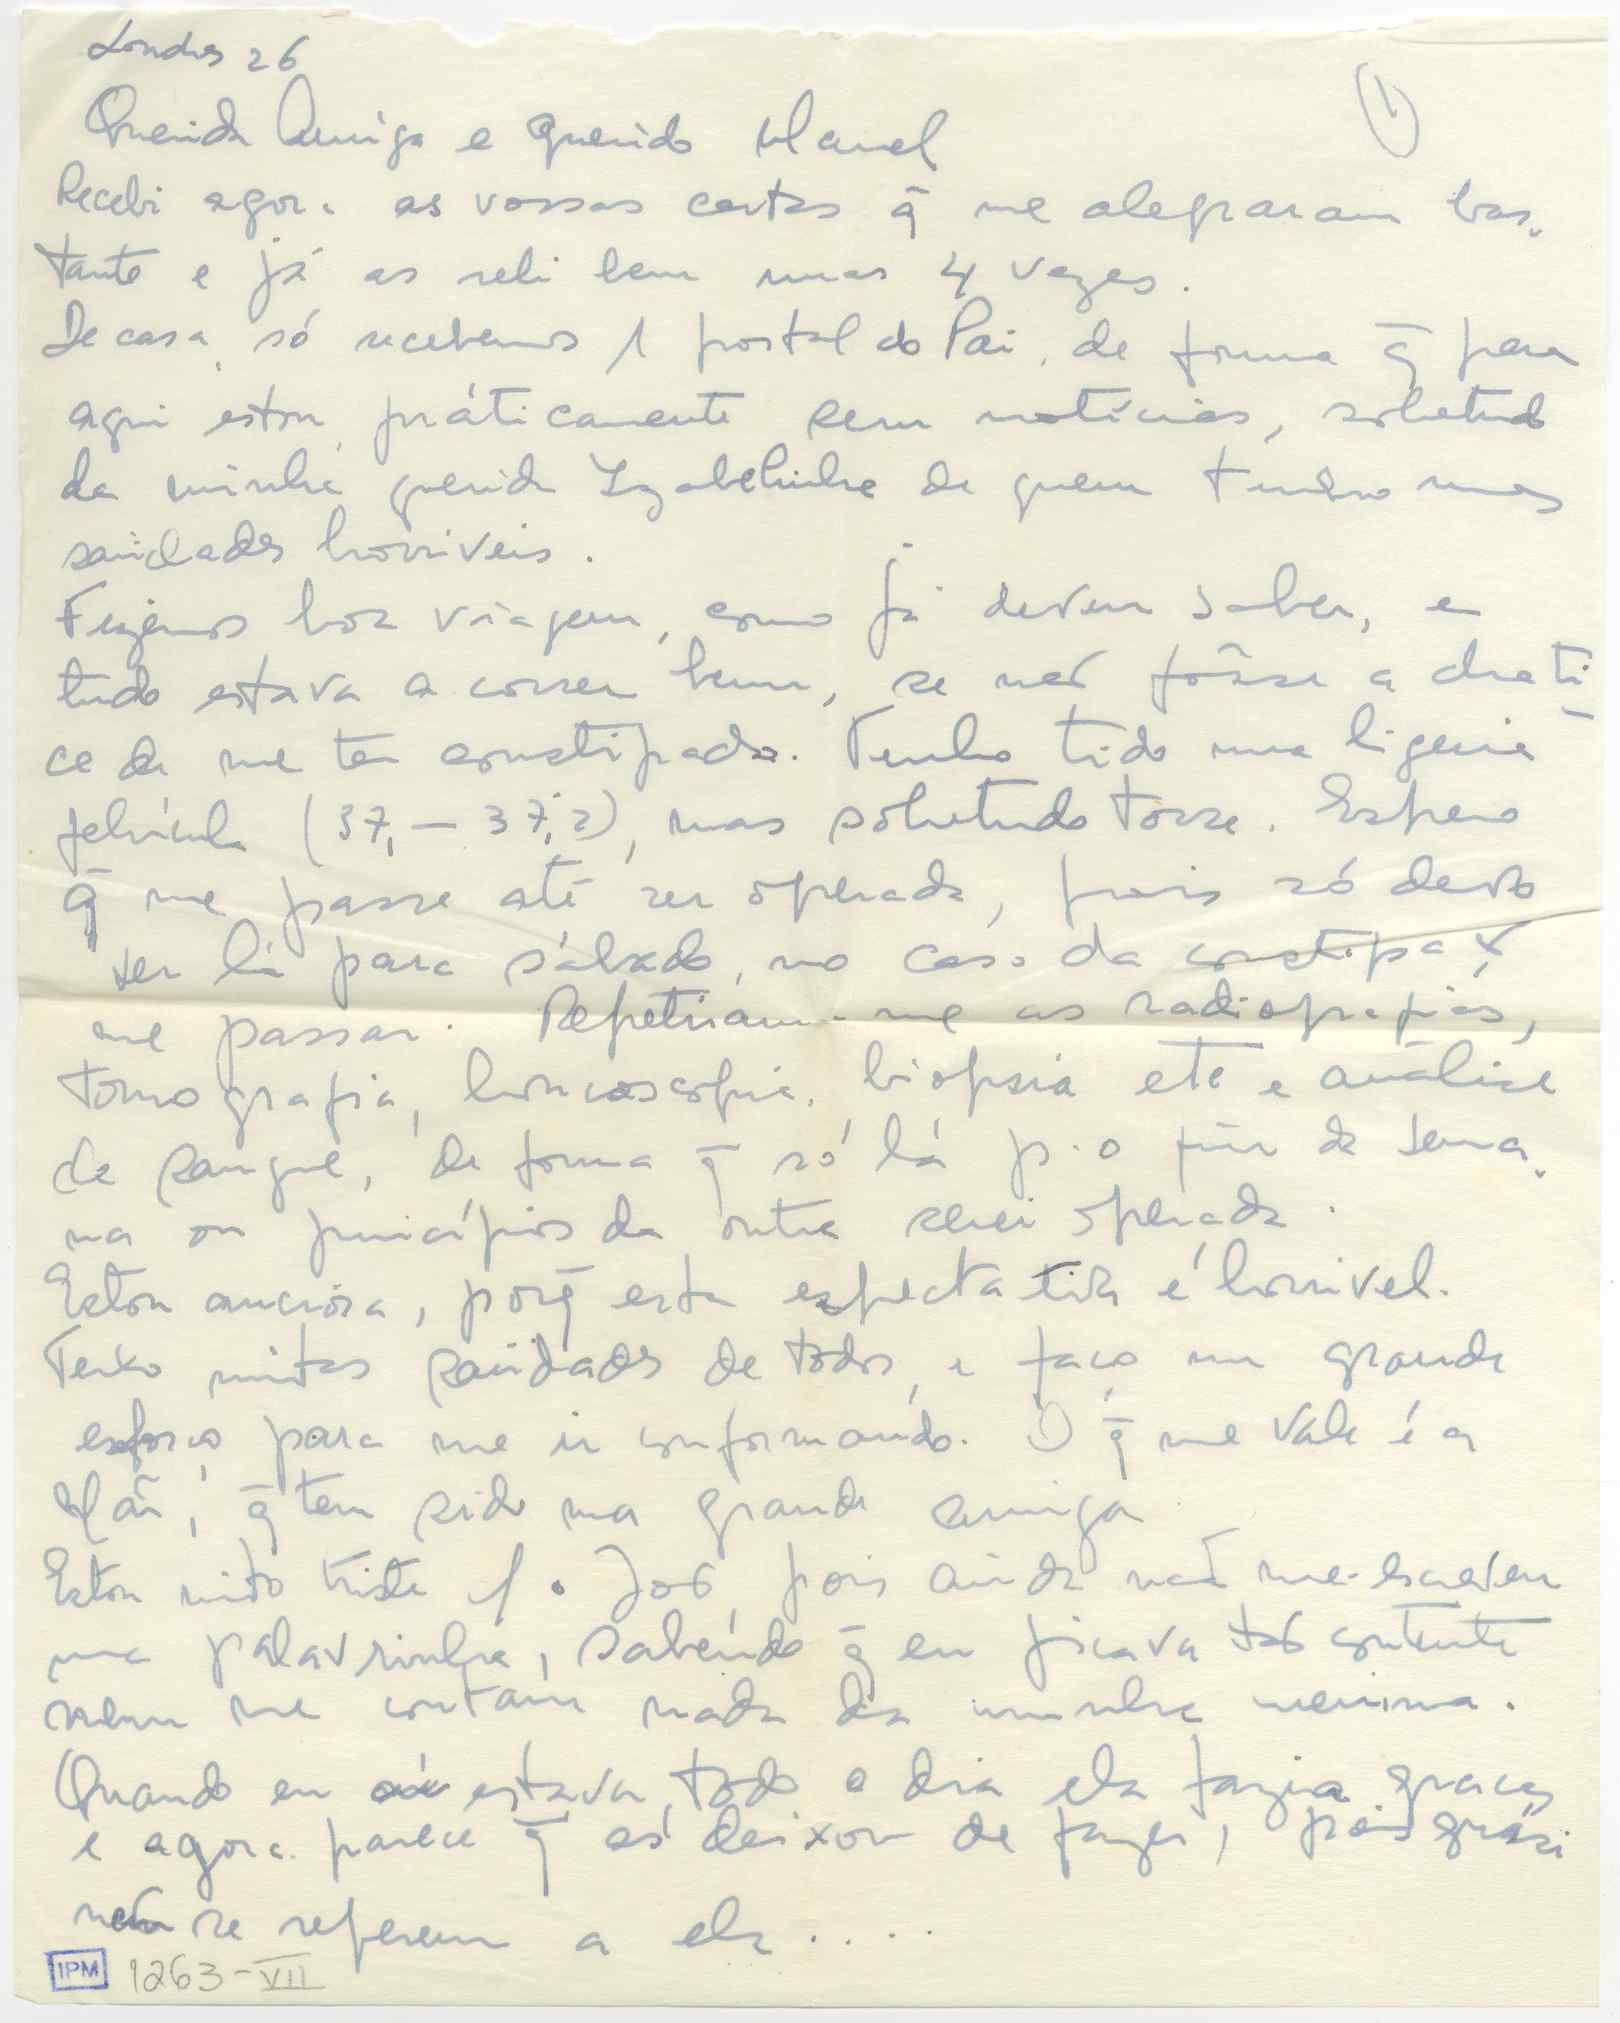 Londres 26
①
Querida Amiga e querido Manel
Recebi agora as vossas cartas q̃ me alegraram bas-
tante e já as reli bem umas 4 vezes.
De casa, só recebemos 1 postal do Pai, de forma q̃ para
aqui estou práticamente sem notícias, sobretudo
da minha querida Izabelinha de quem tenho umas
saüdades horriveis.
Fizemos boa viagem, como já devem saber, e
tudo estava a correr bem, se não fôsse a chati-
ce de me ter constipado. Tenho tido uma ligeira
febrícula (37, – 37,2), mas sobretudo tosse. Espero
q̃ me passe até ser operada, pois só devo
ser lá para sábado, no caso da constipação
me passar. Repetiram-me as radiografias,
tomografia, broncoscopia, biopsia etc e análise
de sangue, de forma q̃ só lá p. o fim de sema-
na ou princípios da outra serei operada.
Estou anciosa, porq̃ esta espectativa é horrivel.
Tenho muitas saüdades de todos, e faço um grande
esforço para me ir conformando. O q̃ me vale é a
Mãi, q̃ tem sido uma grande amiga.
Estou muito triste c/ o João, pois ainda não me escreveu
uma palavrinha, sabendo q̃ eu ficava tão contente
nem me contam nada da minha menina.
Quando eu aí estava, todo o dia ela fazia graças
e agora parece q̃ as deixou de fazer, pois quási
nem se referem a ela.....
IPM 1263-VII